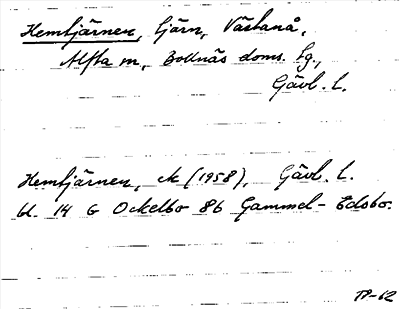 Hemtjärnen, tjärn, Västanå,
Alfta m., Bollnäs doms. tg.,
Gävl. l.
Hemtjärnen, ek (1958), Gävl. l.
bl. 14 G Ockelbo 8b Gammel-Edsbo.
TP-62